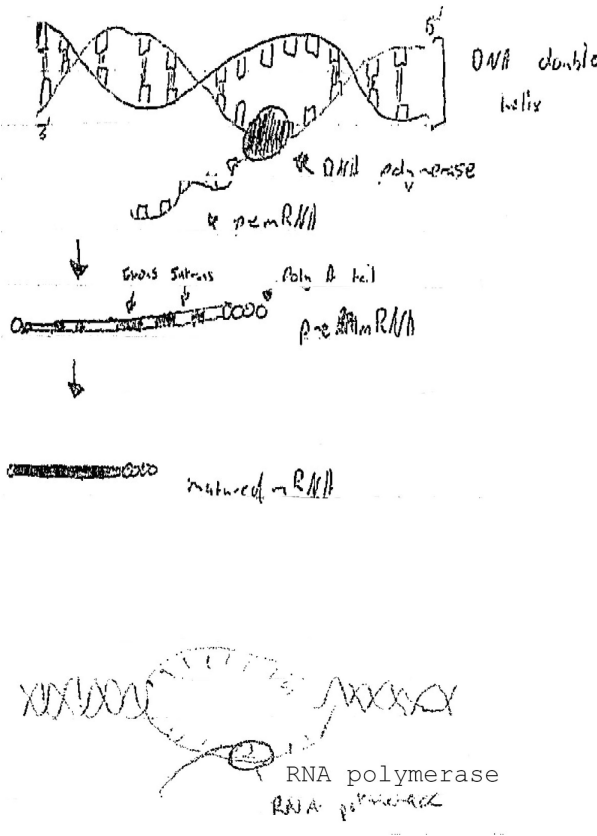 5'
DNA double
helix
3'
DNA polymerase
premRNA
Exons Introns
Poly A tail
pre mRNA
matured mRNA
RNA polymerase
RNA polymerase